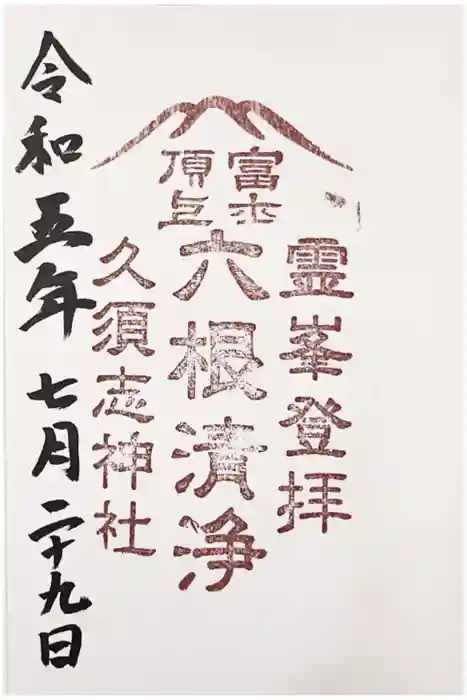 富士
頂上
霊峯登拝
六根清浄
久須志神社
令和五年七月二十九日